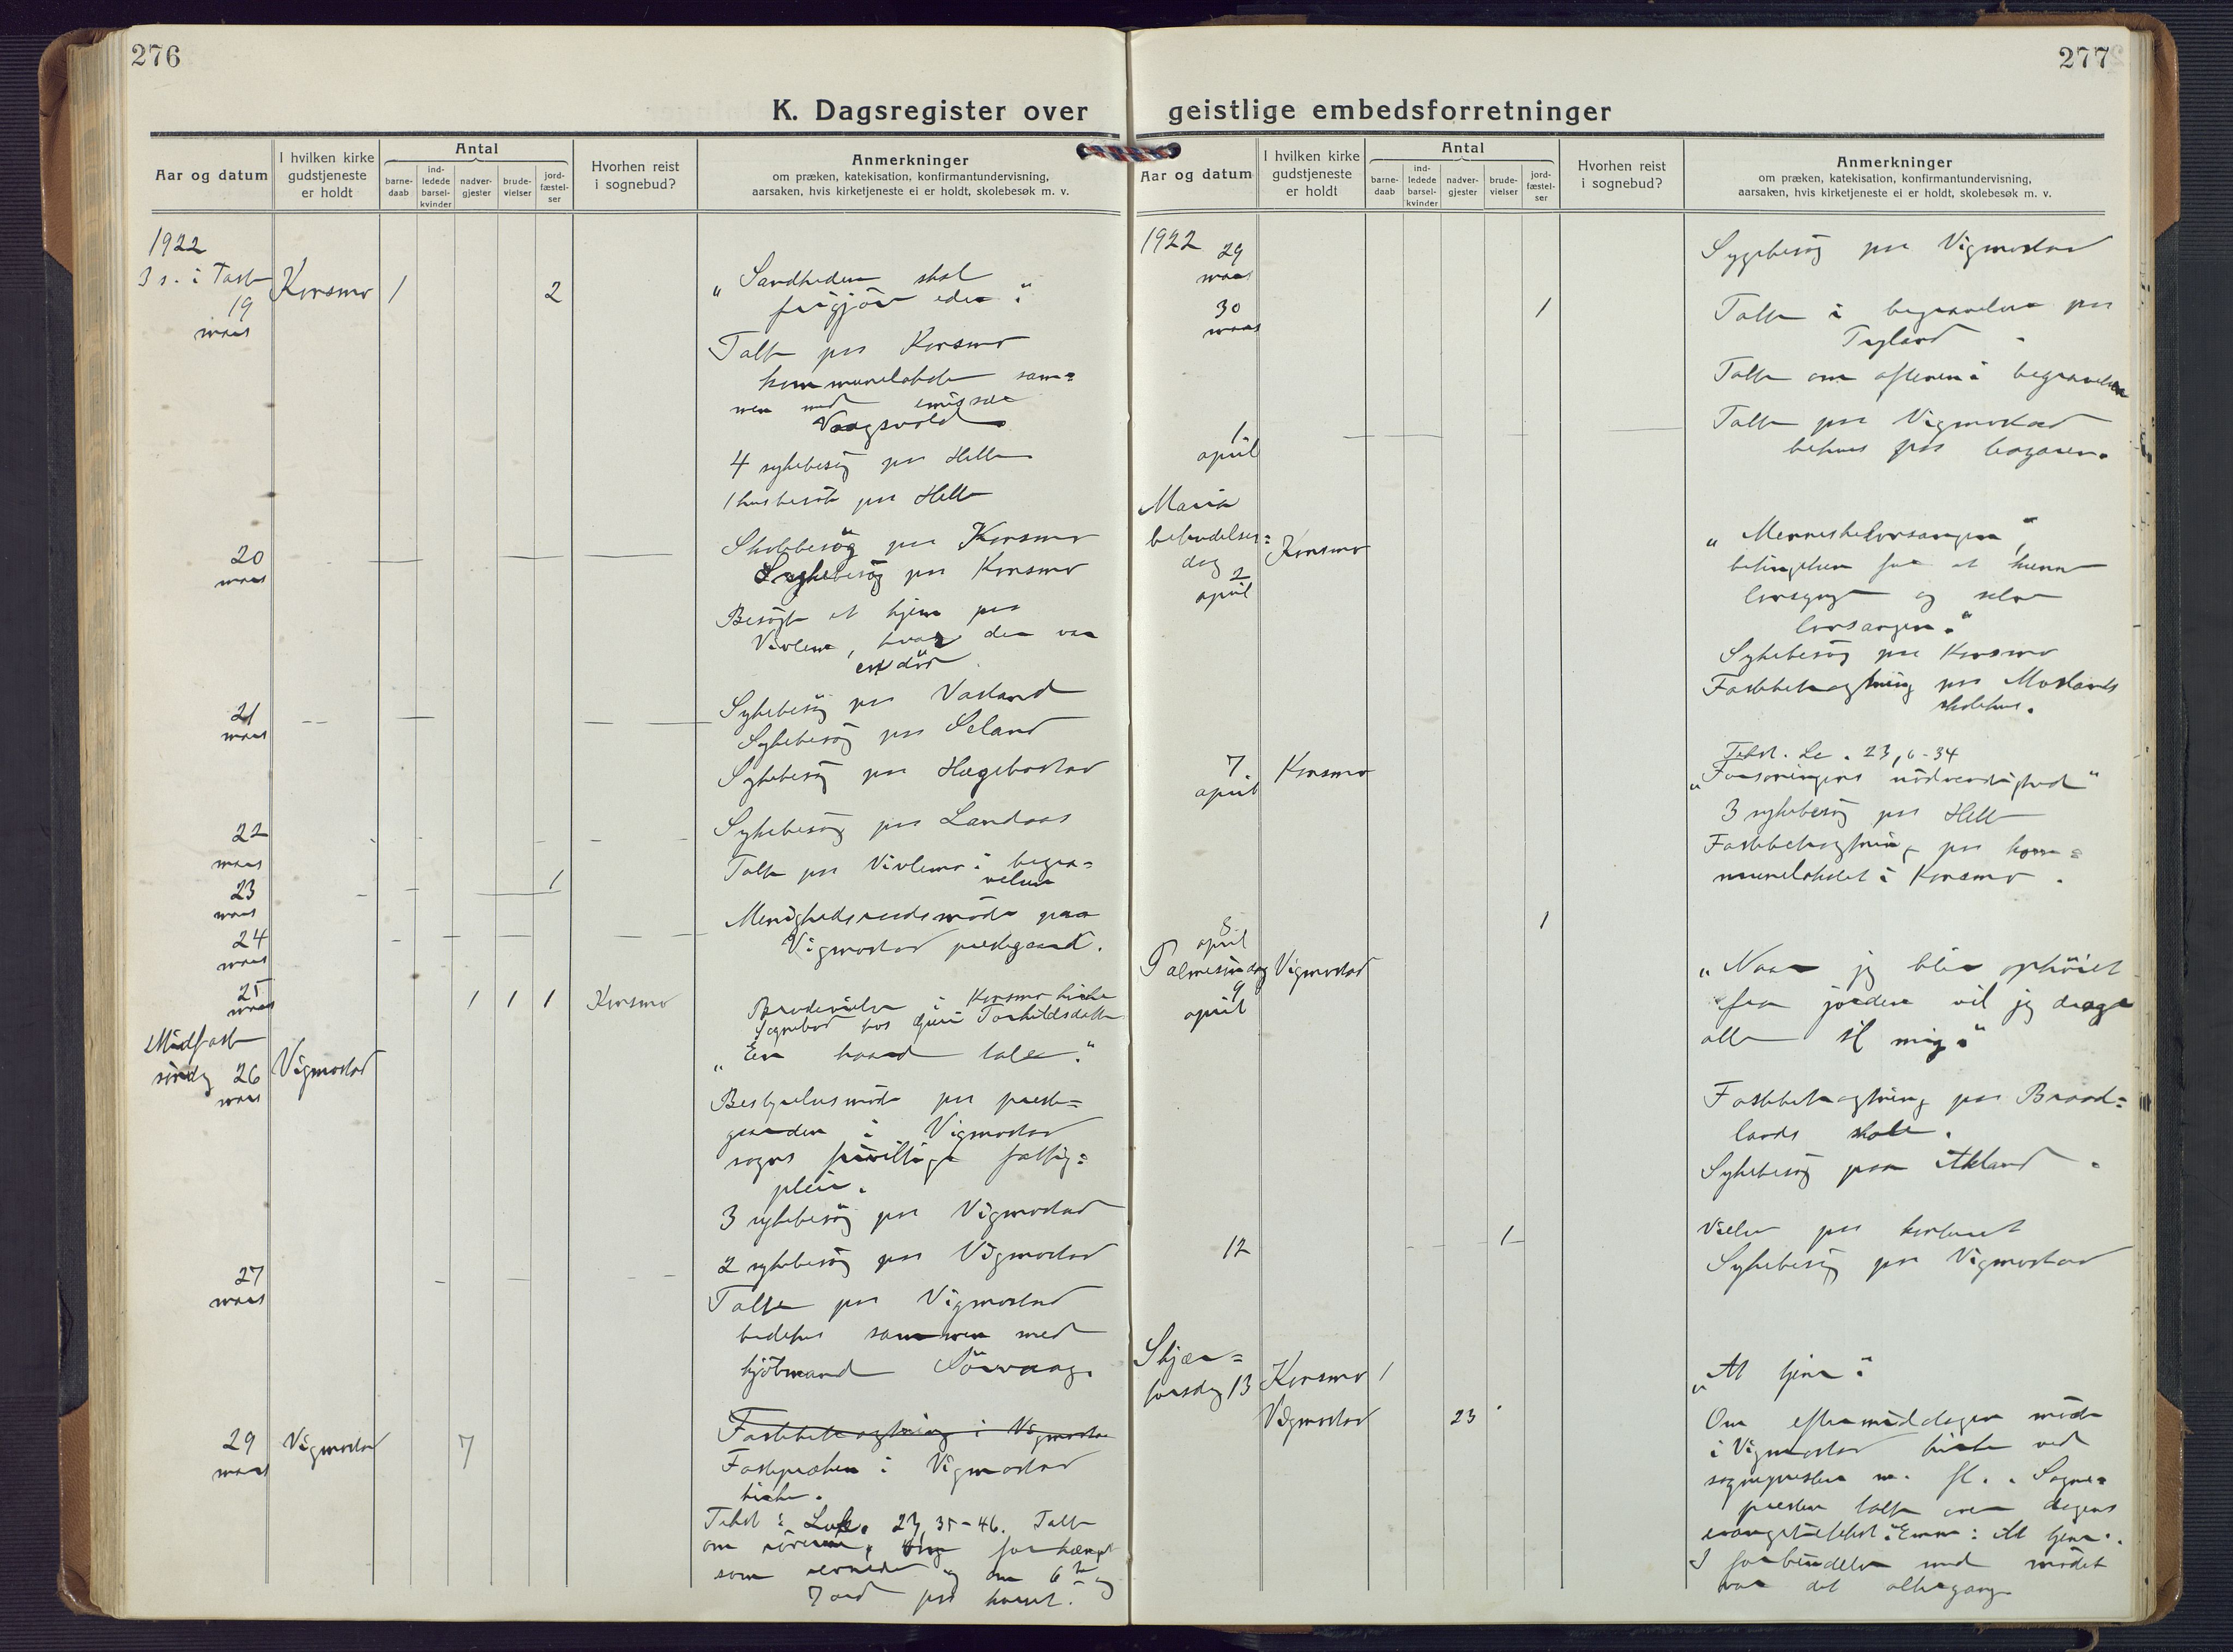 276
K. Dagsregister over
Aar og datum
I hvilken kirke
gudstjeneste
er holdt
Antal
barne-
daab
ind-
ledede
barsel-
kvinder
nadver-
gjester
brude-
vielser
jord-
fæstel-
ser
Hvorhen reist
i sognebud?
Anmerkninger
om præken, katekisation, konfirmantundervisning,
aarsaken, hvis kirketjeneste ei er holdt, skolebesøk m. v.
1922
3 s. i Faste
19
mars
Konsmo
1
2
„Sandheden skal
frigjöre eder."
Talte paa Konsmo
kommunelokale sam=
men med emissær
Vaagsvold.
4 sykebesög paa Helle
1 husbesök paa Helle
20
mars
Skolebesög paa Konsmo
Sykebesög paa Konsmo
Besögte et hjem paa
Vivlemo, hvor der var
en död
21
mars
Sykebesög paa
Sykebesög paa Seland
Sykebesög paa Hægebostad
22
mars
Sykebesög paa Landaas
23
mars
1
Talte paa Vivlemo i begra=
velse
24
mars
Menighedsraadsmöde paa
Vigmostad prestegaard.
25
mars
1
1
1
Konsmo
Brudevielse i Konsmo kirke
Sognebud hos Guri Torkildsdatter
Midfaste
söndag 26
mars
Vigmostad
„En haard tale."
Bestyrelsesmöde paa preste=
gaarden i Vigmostad
sogns frivillige fattig=
pleie.
3 sykebesög paa Vigmostad
27
mars
2 sykebesög paa Vigmostad
Talte paa Vigmostad
bedehus sammen med
kjöbmand Sörvaag.
29
mars
Vigmostad
7
Fastebetragtning i Vigmostad
Fastepræken i Vigmostad
kirke.
Tekst: Luk. 23, 35-46. Talte
om röveren,
som og om 6te og
7 ord paa korset.
277
geistlige embedsforretninger
Aar og datum
I hvilken kirke
gudstjeneste
er holdt
Antal
barne-
daab
ind-
ledede
barsel-
kvinder
nadver-
gjester
brude-
vielser
jord-
fæstel-
ser
Hvorhen reist
i sognebud?
Anmerkninger
om præken, katekisation, konfirmantundervisning,
aarsaken, hvis kirketjeneste ei er holdt, skolebesøk m. v.
1922
29
mars
Sygebesög paa Vigmostad
30
mars
1
Talte i begravelse paa
Tryland.
Talte om aftenen i begravelsen
1
april
Talte paa Vigmostad
bedehus paa basaren.
Maria
budskabs=
dag 2
april
Konsmo
„Menneskelovsangen,
betingelsen for at kunne
lovsynge og selve
lovsangen."
Sykebesög paa Konsmo
Fastebetragtning paa Moslands
skolehus.
7
april
Konsmo
Tekst. Lc. 23, 6-34
„Forsoningens nödvendighed"
3 sykebesög paa Helle
Fastebetragtning paa kom=
munelokalet i Konsmo.
8
april
1
Palmesöndag
9
april
Vigmostad
„Naar jeg blir ophöiet
fra jorden vil jeg drage
alle til mig."
Fastebetragtning paa Braad=
lands skole.
Sykebesög paa Akland.
12
1
Vielse paa kontoret
Sykebesög paa Vigmostad
Skjær=
torsdag 13
Konsmo
1
„At tjene."
Vigmostad
23
Om eftermiddagen möde
i Vigmostad kirke ved
sognepresten m. fl. Sogne=
presten talte over dagens
evangelietekst: Emne: At tjene.
I forbindelse med mödet
var det altergang